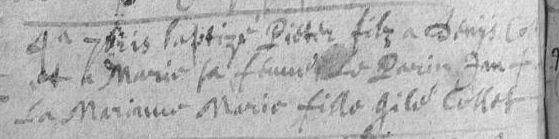 4a 7bris baptizé Pieter filz a Denÿs Co
et a Marie sa femme le Parin Jan f
La Marinne Marie fille Gile Collet